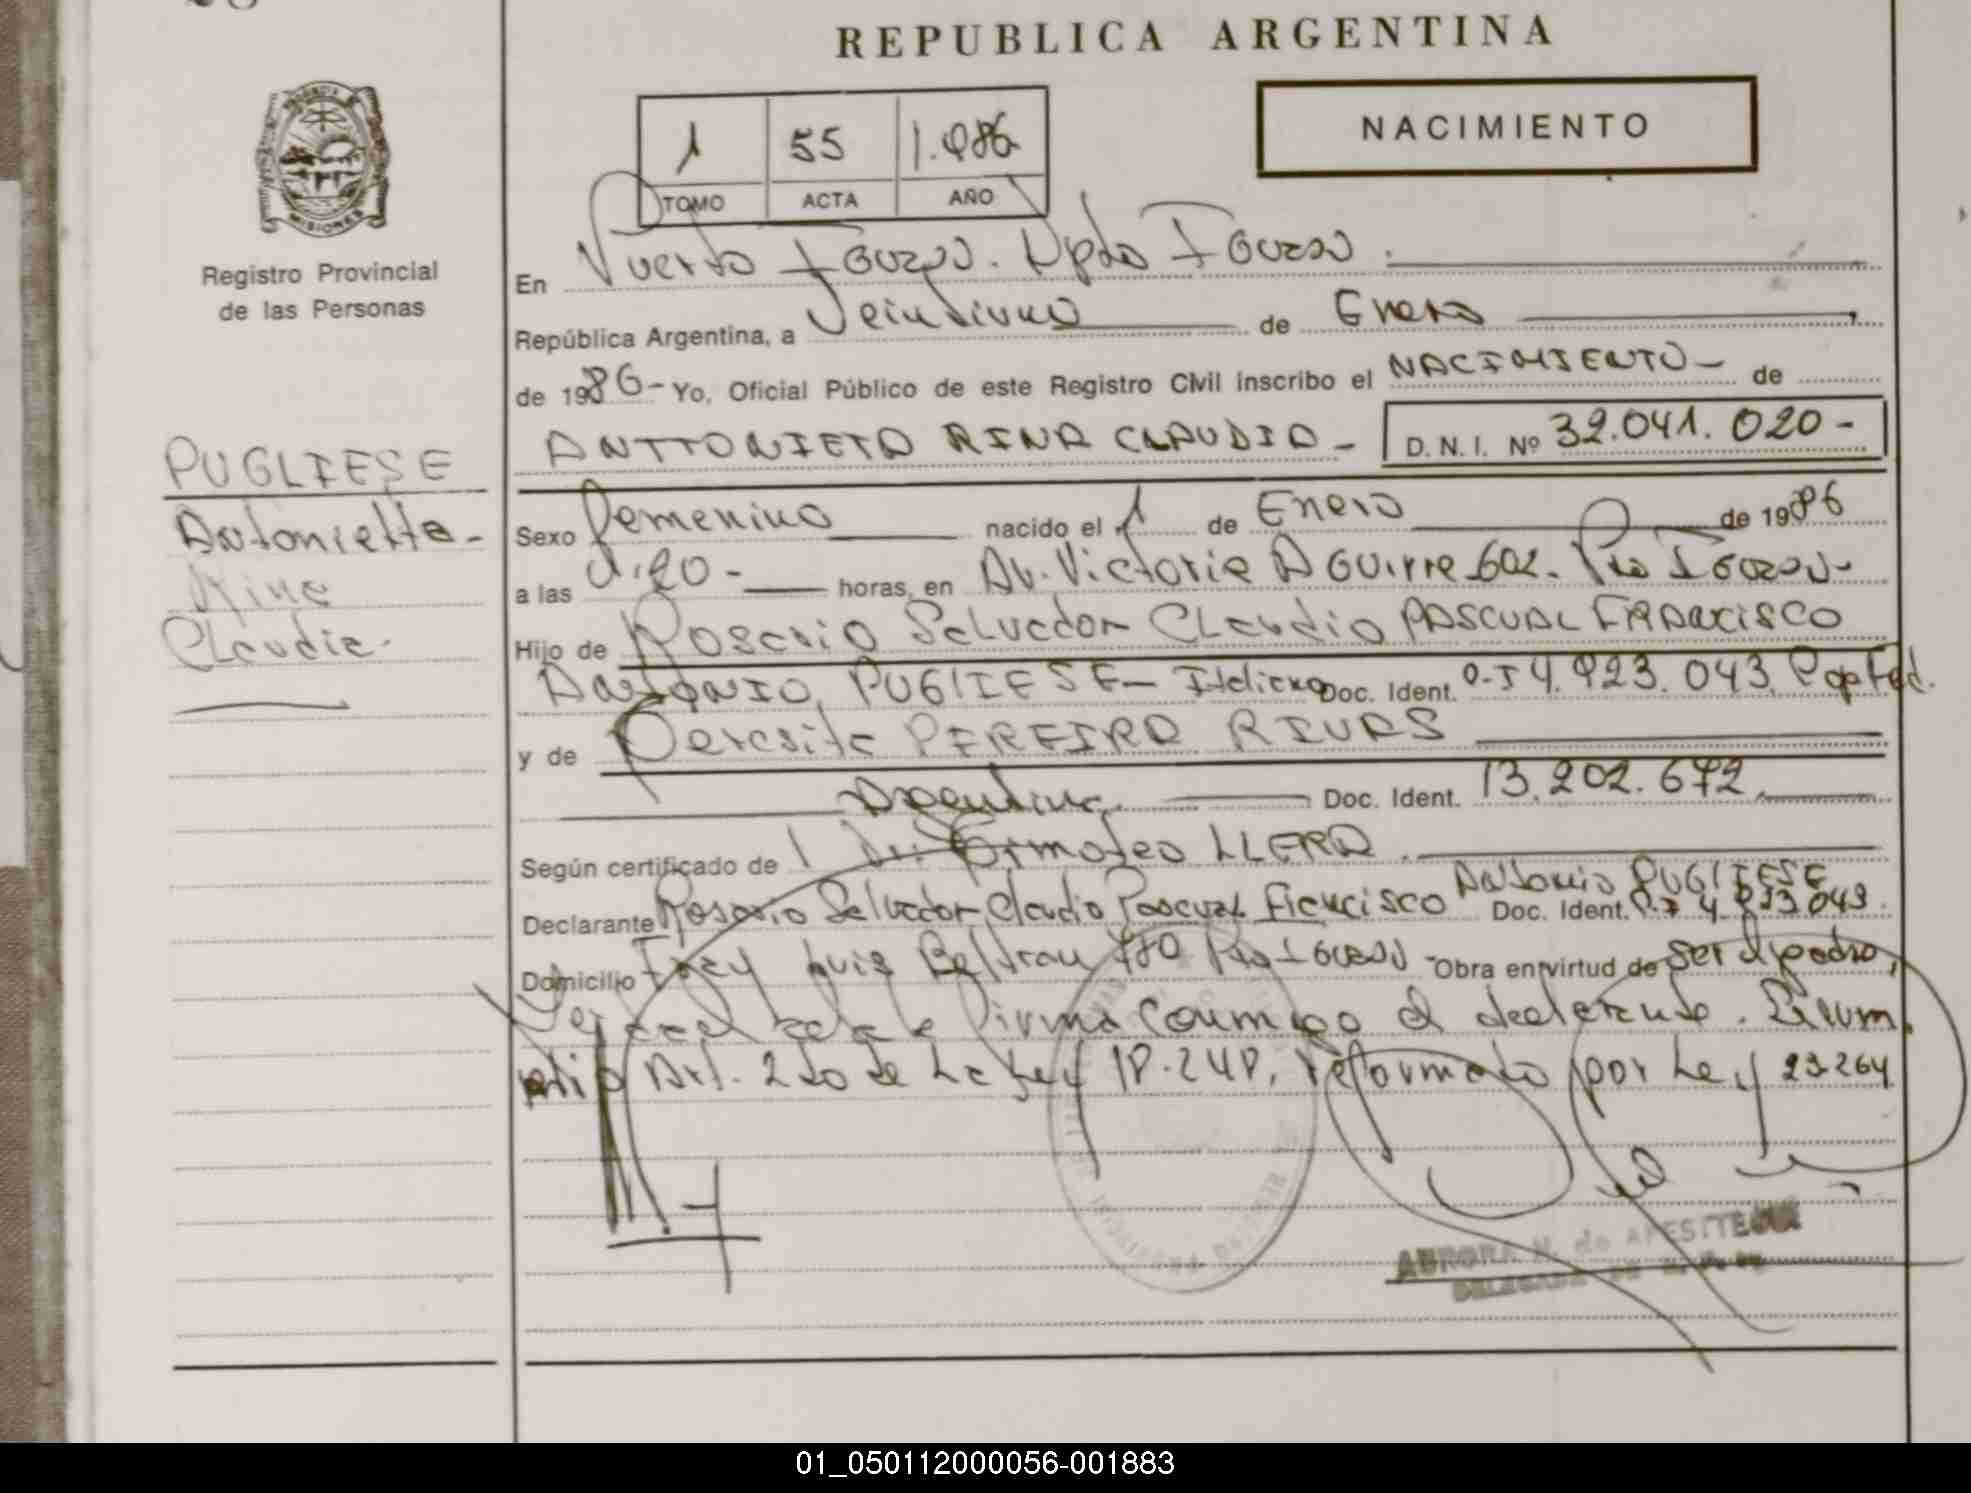 REPUBLICA ARGENTINA
NACIMIENTO
1 55 1.986
TOMO ACTA AÑO
PROVINCIA DE
MISIONES
Registro Provincial
de las Personas
En Puerto Iguazú. Dpto Iguazú.
República Argentina, a Veintiuno de Enero
de 1986- Yo, Oficial Público de este Registro Civil inscribo el NACIMIENTO- de
ANTTONIETA RINA CLAUDIA- D. N. I. Nº 32.041.020-
PUGLIESE
Antonietta-
Rina
Claudia-
Sexo Femenino nacido el 1 de Enero de 1986
a las horas, en Av. Victoria Aguirre 602- Pto Iguazú-
Hijo de Rosario Salvador Claudio PASCUAL FRANCISCO
ANTONIO PUGLIESE- Italiano Doc. Ident. 4.923.043
y de Teresita PEREIRA RIVAS
Argentina. Doc. Ident. 13.202.672
Según certificado de LLERA.
Declarante Rosario Salvador Claudio Pascual Francisco Antonio PUGLIESE Doc. Ident. 4.923.043
Domicilio Fray Luis Beltran 780 Pto Iguazú - Obra en virtud de ser el padre,
firma conmigo el declarante.
Art. 2do de la Ley 18.248, reformado por Ley 23264
AURORA N. de APESITEGUI
DELEGADA
01_050112000056-001883